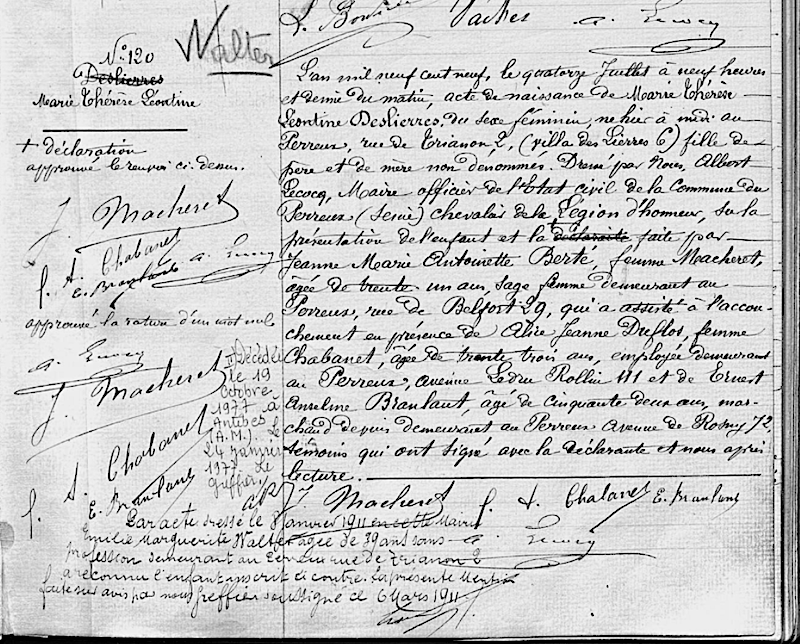 L. Bonlieu Vacher a. Lecocq
N° 120
Walter
Deslierres
Marie Thérèse Léontine
+ déclaration
approuvé le renvoi ci-dessus.
J. Macheret
f. A. Chabanet
E. Branlant a. Lecocq
approuvé la rature d'un mot nul
a. Lecocq
J. Macheret
f. A. Chabanet
E. Branlant
Décédée
le 19
Octobre
1977 à
Antibes
(A.M.). Le
24 janvier
1977. Le
greffier,
L'an mil neuf cent neuf, le quatorze Juillet à neuf heures
et demie du matin, acte de naissance de Marie Thérèse
Léontine Deslierres, du sexe féminin née hier à midi au
Perreux, rue de Trianon 2, (villa des Lierres 6) fille de
père et de mère non dénommés. Dressé par Nous, Albert
Lecocq, Maire officier de l'Etat civil de la Commune du
Perreux (Seine) chevalier de la Légion d'honneur, sur la
présentation de l'enfant et la déclarante faite par
Jeanne Marie Antoinette Berte, femme Macheret,
âgée de trente un ans, sage femme demeurant au
Perreux, rue de Belfort 29, qui a assisté à l'accou-
chement en présence de Alice Jeanne Dreflos, femme
Chabanet, âgée de trente trois ans, employée demeurant
au Perreux, avenue Ledru Rollin 111 et de Ernest
Anselme Branlant, âgé de cinquante deux ans, mar-
chand demeurant au Perreux Avenue de Rosny 72,
témoins qui ont signé avec la déclarante et nous après
lecture.
J. Macheret f. A. Chabanet E. Branlant
a. Lecocq
Par acte dressé le 8 janvier 1911 en cette Mairie
Emilie Marguerite Walter agée de 39 ans sans
profession demeurant au Perreux rue de Trianon 2
a reconnu l'enfant inscrit ci contre. La présente Mention
faite sur avis par nous Greffier soussigné ce 6 Mars 1911